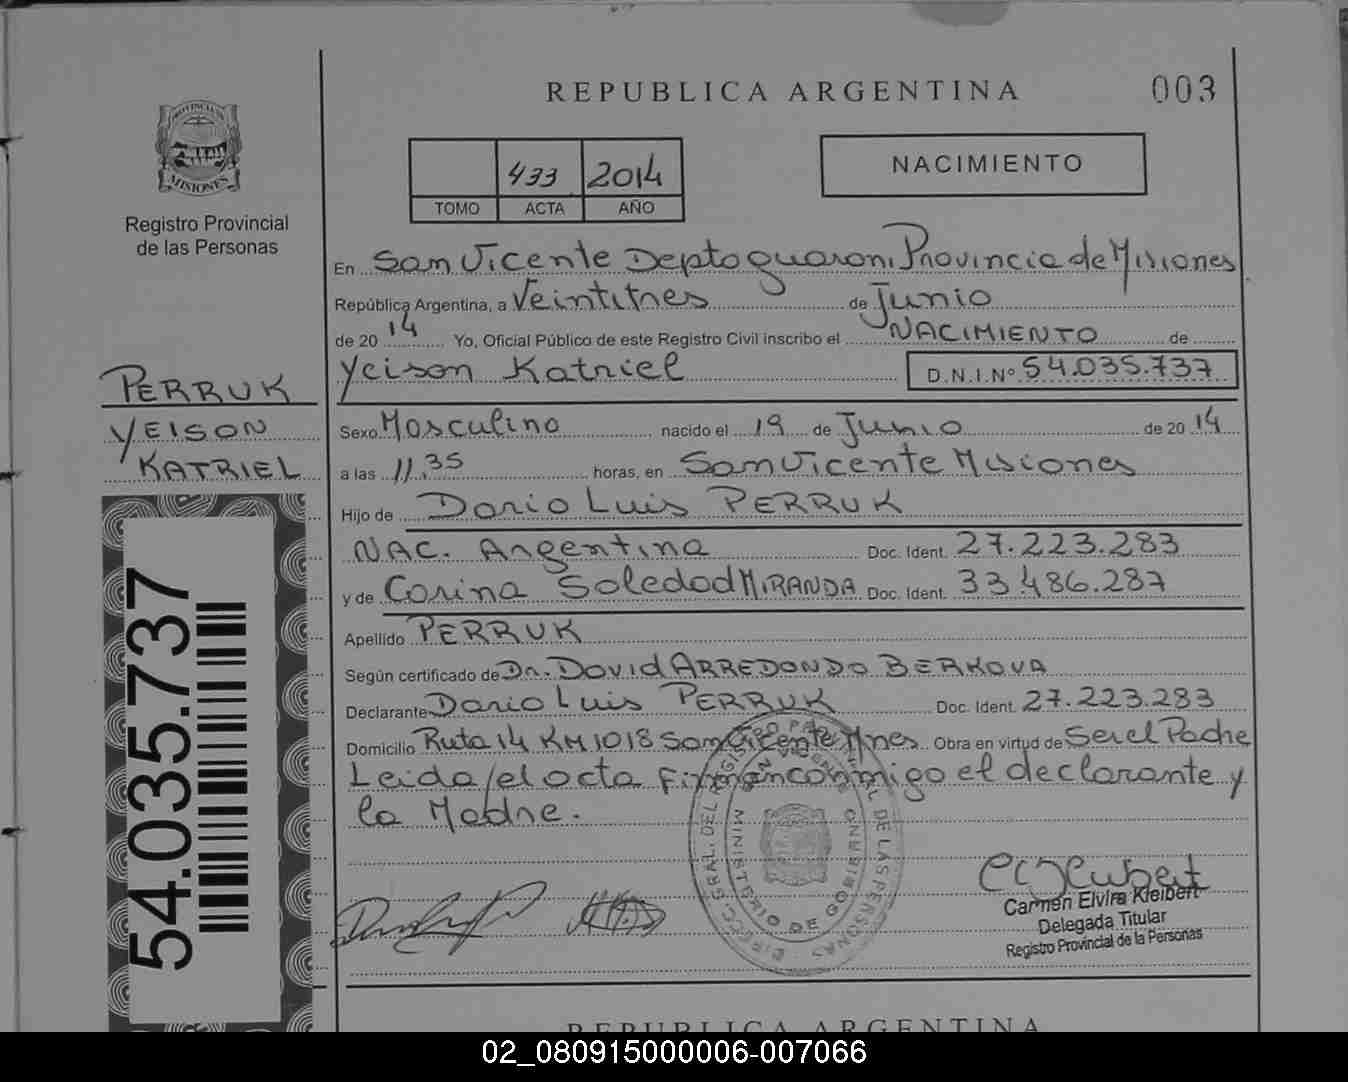 REPUBLICA ARGENTINA
003
PROVINCIA DE
MISIONES
Registro Provincial
de las Personas
433 2014
TOMO ACTA AÑO
NACIMIENTO
En San Vicente Depto guarani Provincia de Misiones
República Argentina, a Veintitres de Junio
de 20 14 Yo, Oficial Público de este Registro Civil inscribo el NACIMIENTO de
Yeison Katriel D.N.I.Nº 54.035.737
PERRUK
YEISON
KATRIEL
Sexo Masculino nacido el 19 de Junio de 20 14
a las 11.35 horas, en San Vicente Misiones
Hijo de Dario Luis PERRUK
NAC. Argentina Doc. Ident. 27.223.283
y de Carina Soledad MIRANDA Doc. Ident. 33.486.287
Apellido PERRUK
Según certificado de Dr. David ARREDONDO BERKOVA
Declarante Dario Luis PERRUK Doc. Ident. 27.223.283
Domicilio Ruta 14 KM 1018 San Vicente Mnes Obra en virtud de Ser el Padre
Leida el acta firman conmigo el declarante y
la Madre.
54.035.737
DIRECC. GRAL. DEL REGISTRO DE LAS PERSONAS
SAN VICENTE
MINISTERIO DE GOBIERNO
Carmen Elvira Kleibert
Delegada Titular
Registro Provincial de la Personas
REPUBLICA ARGENTINA
02_080915000006-007066